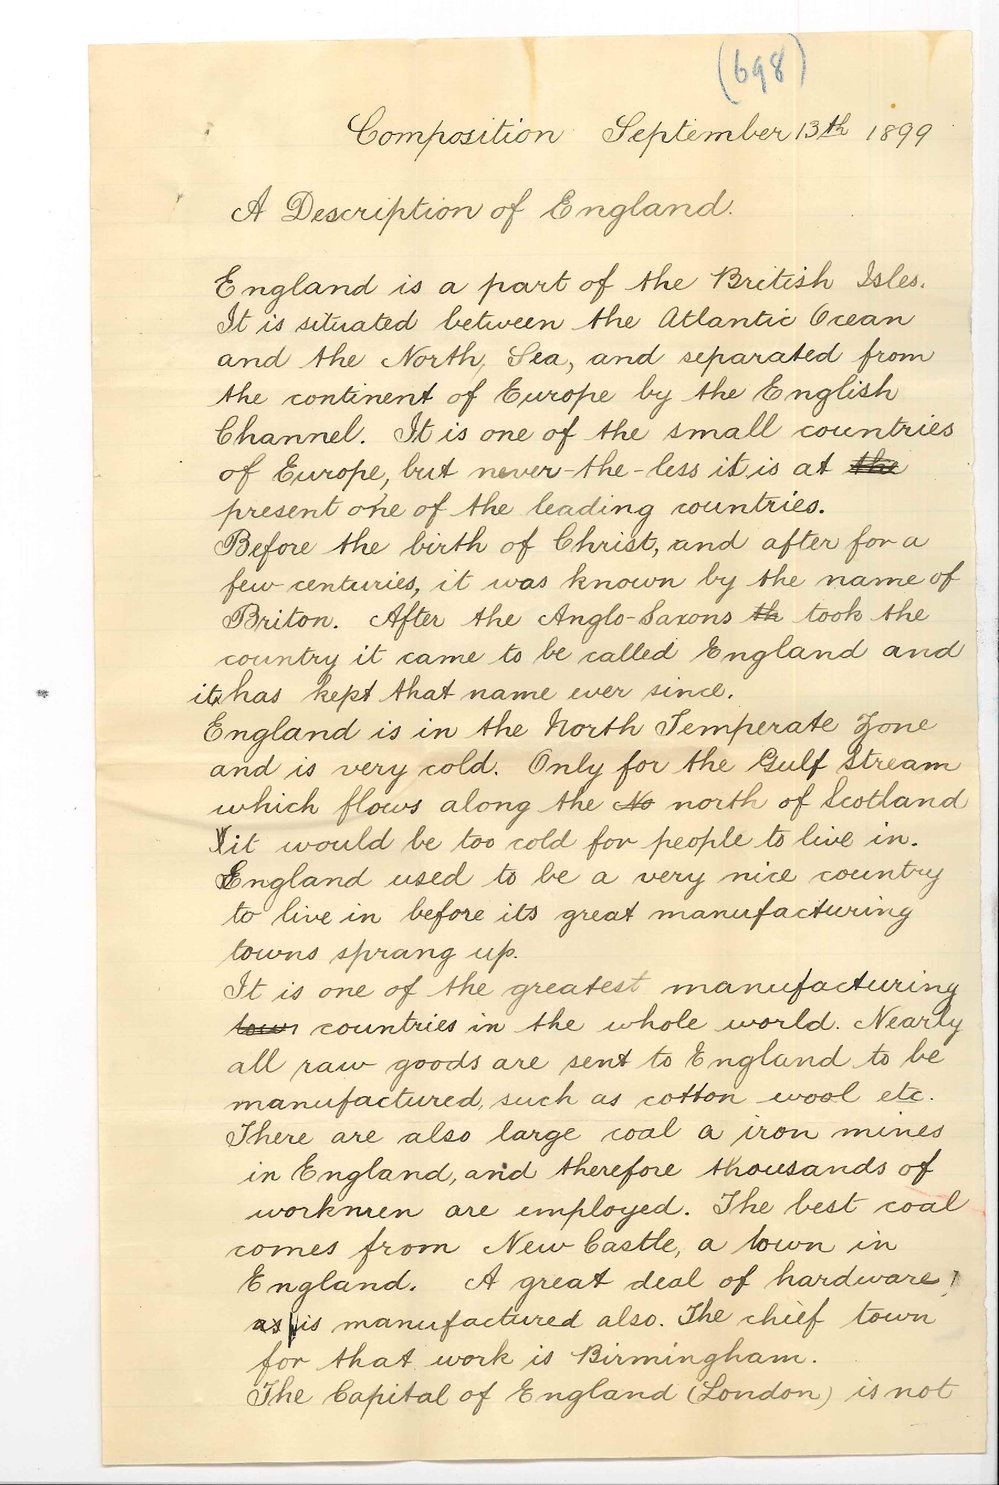 (698)
Composition September 13th 1899
A Description of England.
England is a part of the British Isles.
It is situated between the Atlantic Ocean
and the North Sea, and separated from
the continent of Europe by the English
Channel. It is one of the small countries
of Europe, but never-the-less it is at the
present one of the leading countries.
Before the birth of Christ, and after for a
few centuries, it was known by the name of
Briton. After the Anglo-Saxons th took the
country it came to be called England and
it has kept that name ever since.
England is in the North Temperate Zone
and is very cold. Only for the Gulf Stream
which flows along the No north of Scotland
it would be too cold for people to live in.
England used to be a very nice country
to live in before its great manufacturing
towns sprang up.
It is one of the greatest manufacturing
town countries in the whole world. Nearly
all raw goods are sent to England to be
manufactured, such as cotton wool etc.
There are also large coal a iron mines
in England, and therefore thousands of
workmen are employed. The best coal
comes from New Castle, a town in
England. A great deal of hardware,
as is manufactured also. The chief town
for that work is Birmingham.
The Capital of England (London) is not